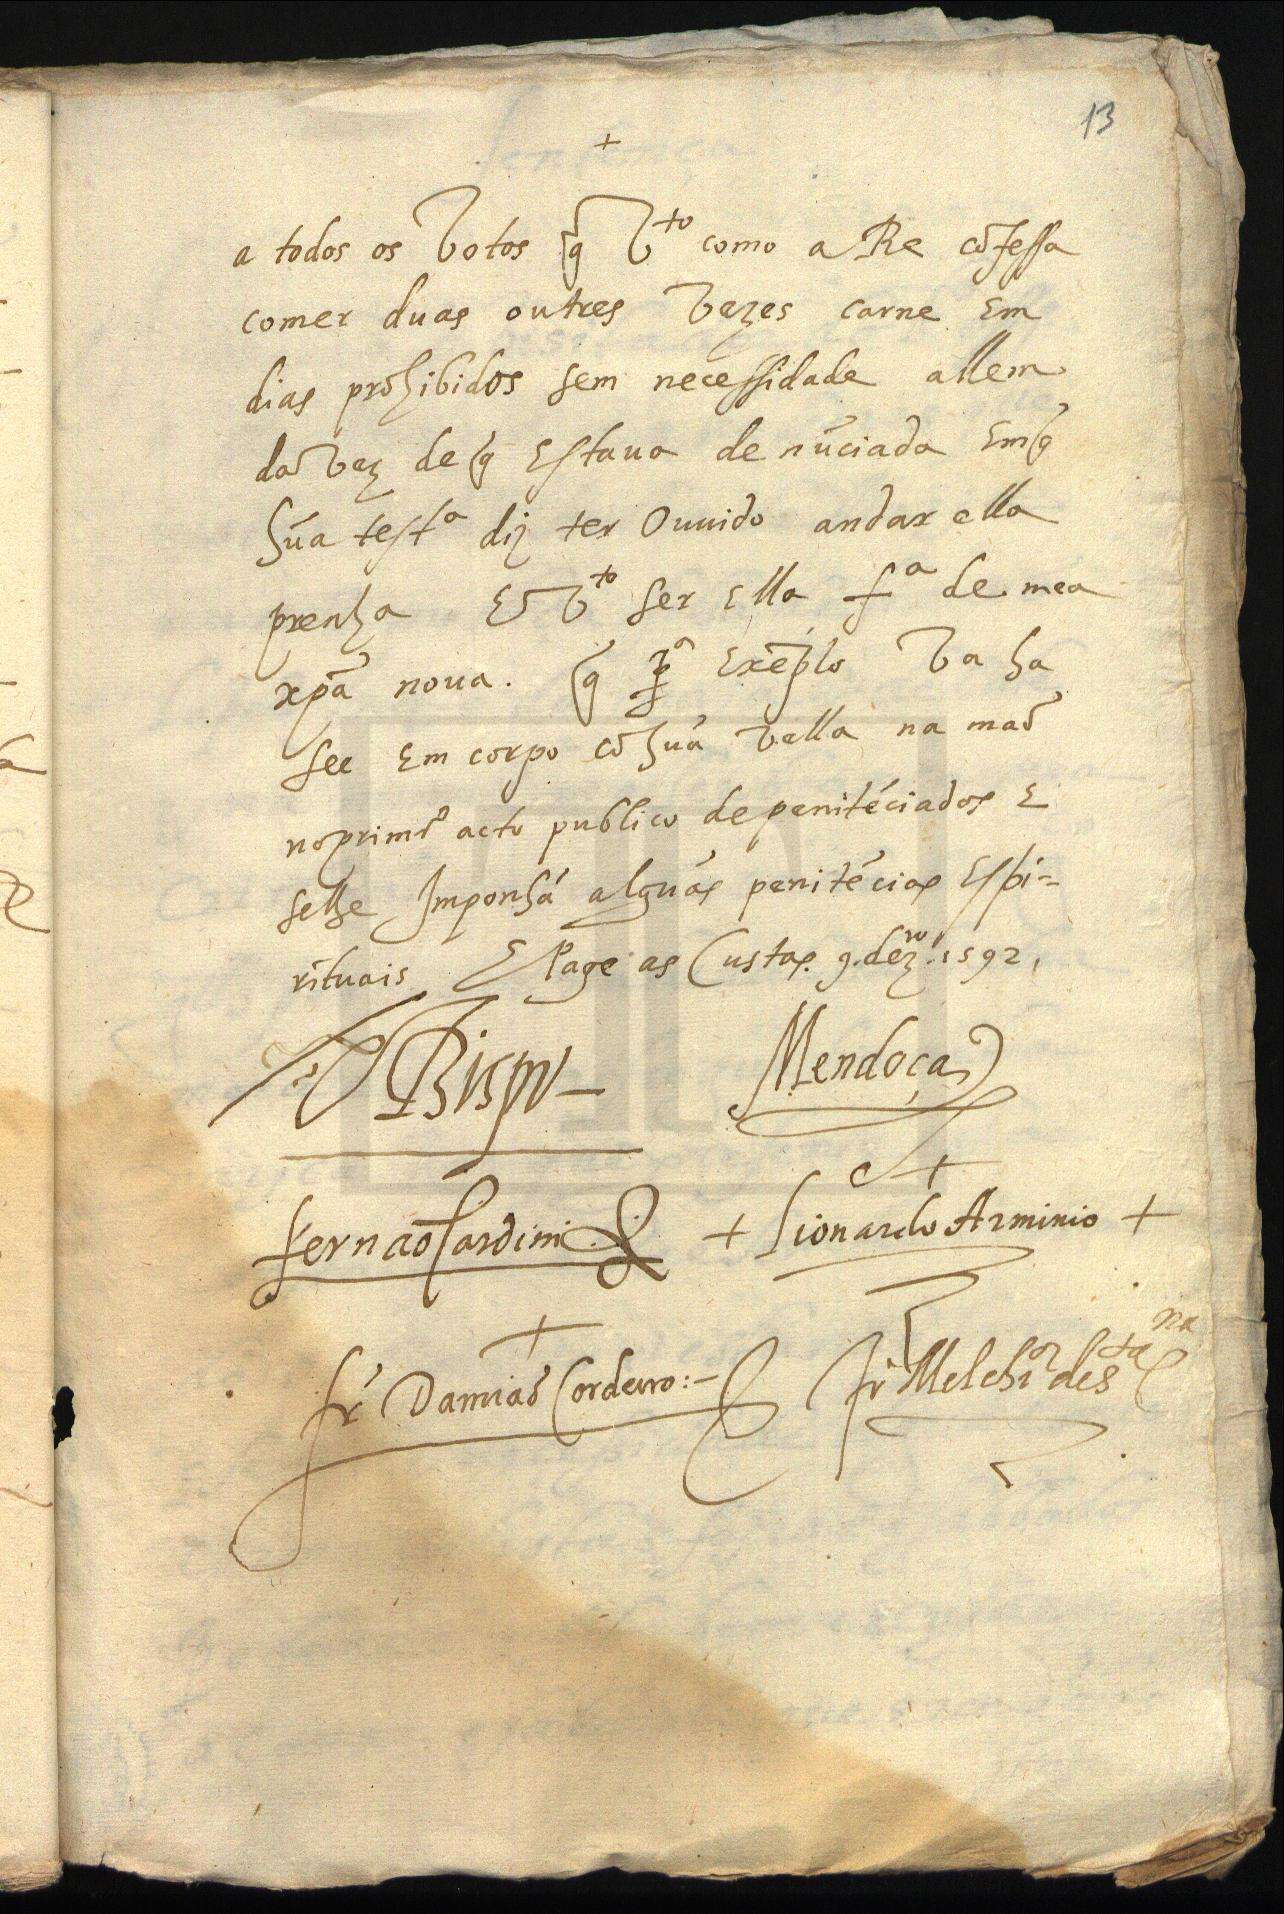 13
+
a todos os votos q̃ v.to como a Re cõfessa
comer duas outres vezes carne em
dias prohibidos sem necessidade allem
da vez de q̃ estava denũciada em q̃
hũa test.a diz ter ouuido andar ella
prenha E v.to ser ella f.a de mea
xpã noua. q̃ p.a exẽplo va ha
see em corpo cõ hũa vella na mão
no prim.ro acto publico de penitẽciados E
selhe Imponhã algũas penitẽcias espi-
rituais E Page as Custas. 9. dez.ro 1592.
Bispo
Mendoça
fernão Cardim
+ Lionardo Arminio +
+
fr Damião Cordeiro:-
fr Melchior de S.ta